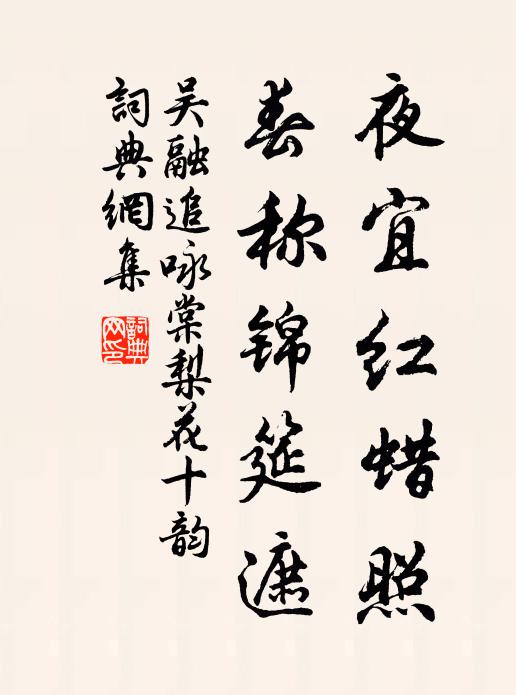 夜宜红蜡照
春称锦筵遮
吴融追咏棠梨花十韵
詞典網集
詞典網印